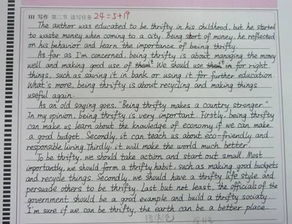 III 写作 第二节 读写任务 24=5+19
The author was educated to be thrifty in his childhood, but he started
to waste money when coming to a city. Being short of money, he reflected
on his behavior and learn the importance of being thrifty.
As far as I'm concerned, being thrifty is about managing the money
well and making good use of them. We should use in for right
things, such as saving it in bank or using it for further education
What's more, being thrifty is about recycling and making things
useful again.
As an old saying goes, "Being thrifty makes a country stronger."
In my opinion, being thrifty is very important. Firstly, being thrifty
can make us learn about the knowledge of economy if we can make
a good budget. Secondly, it can teach us about eco-friendly and
responsible living. Thirdly, it will make the world much better.
To be thrifty, we should take action and start out small. Most
importantly, we should form a thrifty habit, such as making good budgets
and recycle things. Secondly, we should have a thrifty life style and
persuade others to be thrifty. Last but not least, the officials of the
government should be a good example and build a thrifty society.
I'm sure if we can be thrifty, the earth can be a better place.